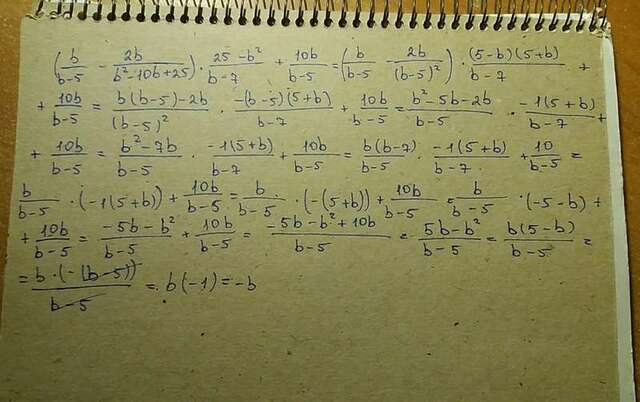 (b/(b-5) - 2b/(b²-10b+25)) · (25-b²)/(b-7) + 10b/(b-5) = (b/(b-5) - 2b/(b-5)²) · ((5-b)(5+b))/(b-7) +
+ 10b/(b-5) = (b(b-5)-2b)/(b-5)² · (-(b-5)(5+b))/(b-7) + 10b/(b-5) = (b²-5b-2b)/(b-5) · (-1(5+b))/(b-7) +
+ 10b/(b-5) = (b²-7b)/(b-5) · (-1(5+b))/(b-7) + 10b/(b-5) = (b(b-7))/(b-5) · (-1(5+b))/(b-7) + 10/(b-5) =
b/(b-5) · (-1(5+b)) + 10b/(b-5) = b/(b-5) · (-(5+b)) + 10b/(b-5) = b/(b-5) · (-5-b) +
+ 10b/(b-5) = (-5b-b²)/(b-5) + 10b/(b-5) = (-5b-b²+10b)/(b-5) = (5b-b²)/(b-5) = (b(5-b))/(b-5) =
= (b·(-(b-5)))/(b-5) = b(-1) = -b